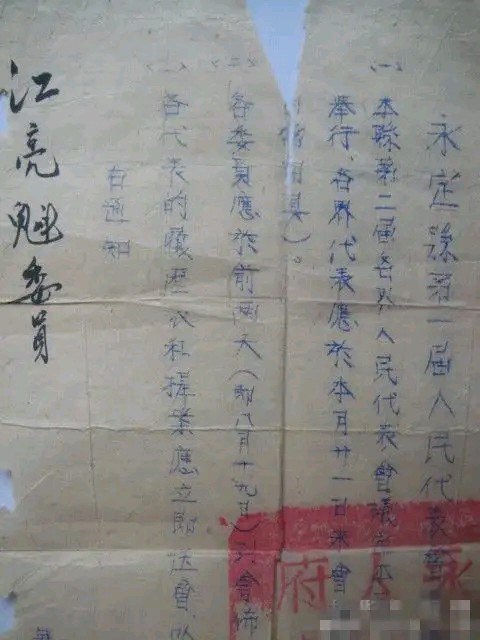 永定縣第一屆人民代表會
(一)本縣第二屆各界人民代表會議
舉行、各界代表應於本月廿一日來會
具)。
(二)各委員應於前兩天(即八月十九日)到會
(一)各代表的履歷表和提案應立即送會、
右通知
江亮魁委員
永
人
府